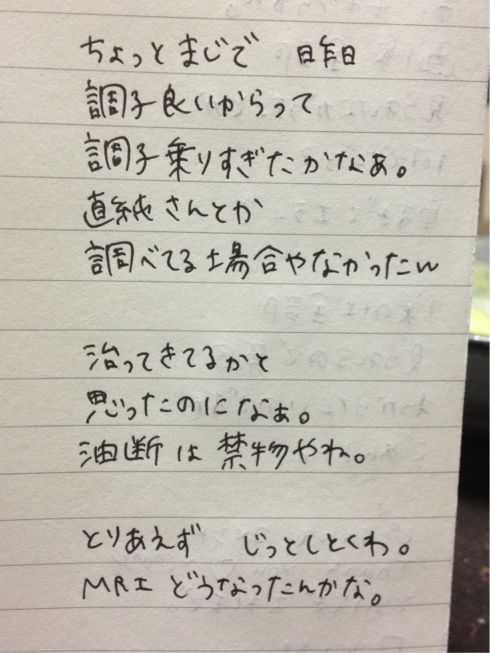 ちょっとまじで 昨日
調子良いからって
調子乗りすぎたかなぁ。
直純さんとか
調べてる場合やなかったんw
治ってきてるかと
思ったのになぁ。
油断は禁物やね。
とりあえず じっとしとくわ。
MRI どうなったんかな。